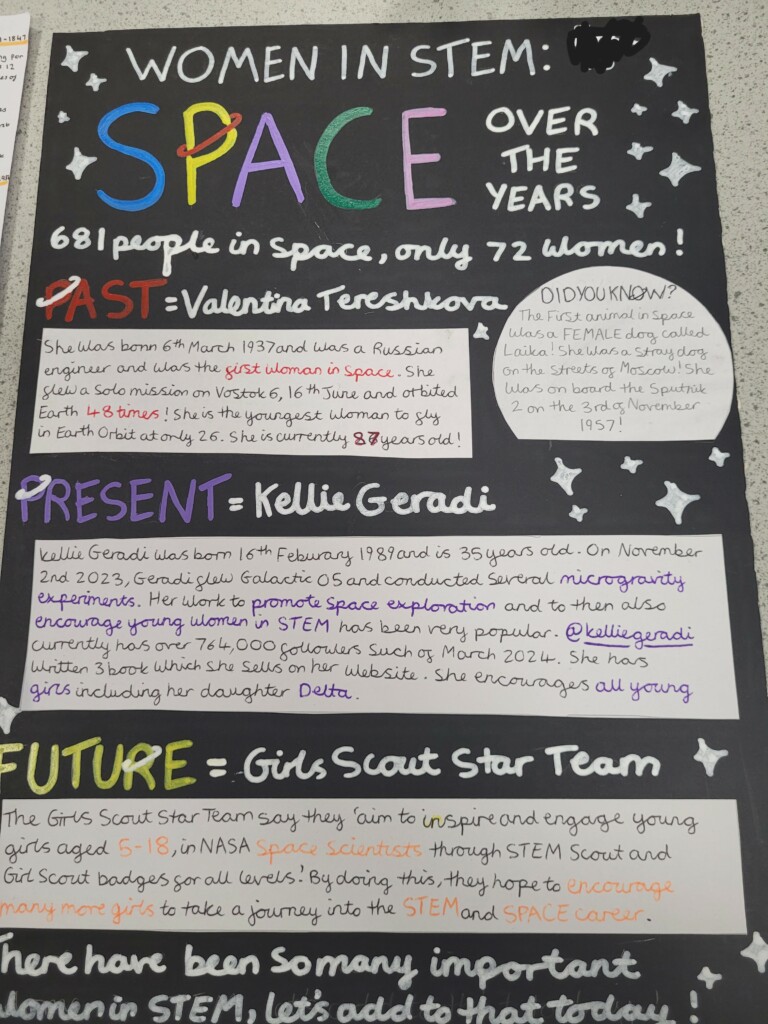 WOMEN IN STEM:
SPACE
OVER
THE
YEARS
681 people in space, only 72 women!
PAST = Valentina Tereshkova
She was born 6th March 1937 and was a Russian
engineer and was the first woman in space. She
flew a solo mission on Vostok 6, 16th June and orbited
Earth 48 times! She is the youngest woman to fly
in Earth Orbit at only 26. She is currently 87 years old!
DID YOU KNOW?
The First animal in space
was a FEMALE dog called
Laika! She was a stray dog
on the streets of Moscow! She
was on board the Sputnik
2 on the 3rd of November
1957!
PRESENT = Kellie Geradi
Kellie Geradi was born 16th Feburary 1989 and is 35 years old. On November
2nd 2023, Geradi flew Galactic 05 and conducted several microgravity
experiments. Her work to promote space exploration and to then also
encourage young women in STEM has been very popular. @kelliegeradi
currently has over 764,000 followers such of March 2024. She has
written 3 book which she sells on her website. She encourages all young
girls including her daughter Delta.
FUTURE = Girls Scout Star Team
The Girls Scout Star Team say they 'aim to inspire and engage young
girls aged 5-18, in NASA Space Scientists through STEM Scout and
Girl Scout badges for all levels.' By doing this, they hope to encourage
many more girls to take a journey into the STEM and SPACE career.
There have been so many important
women in STEM, let's add to that today!